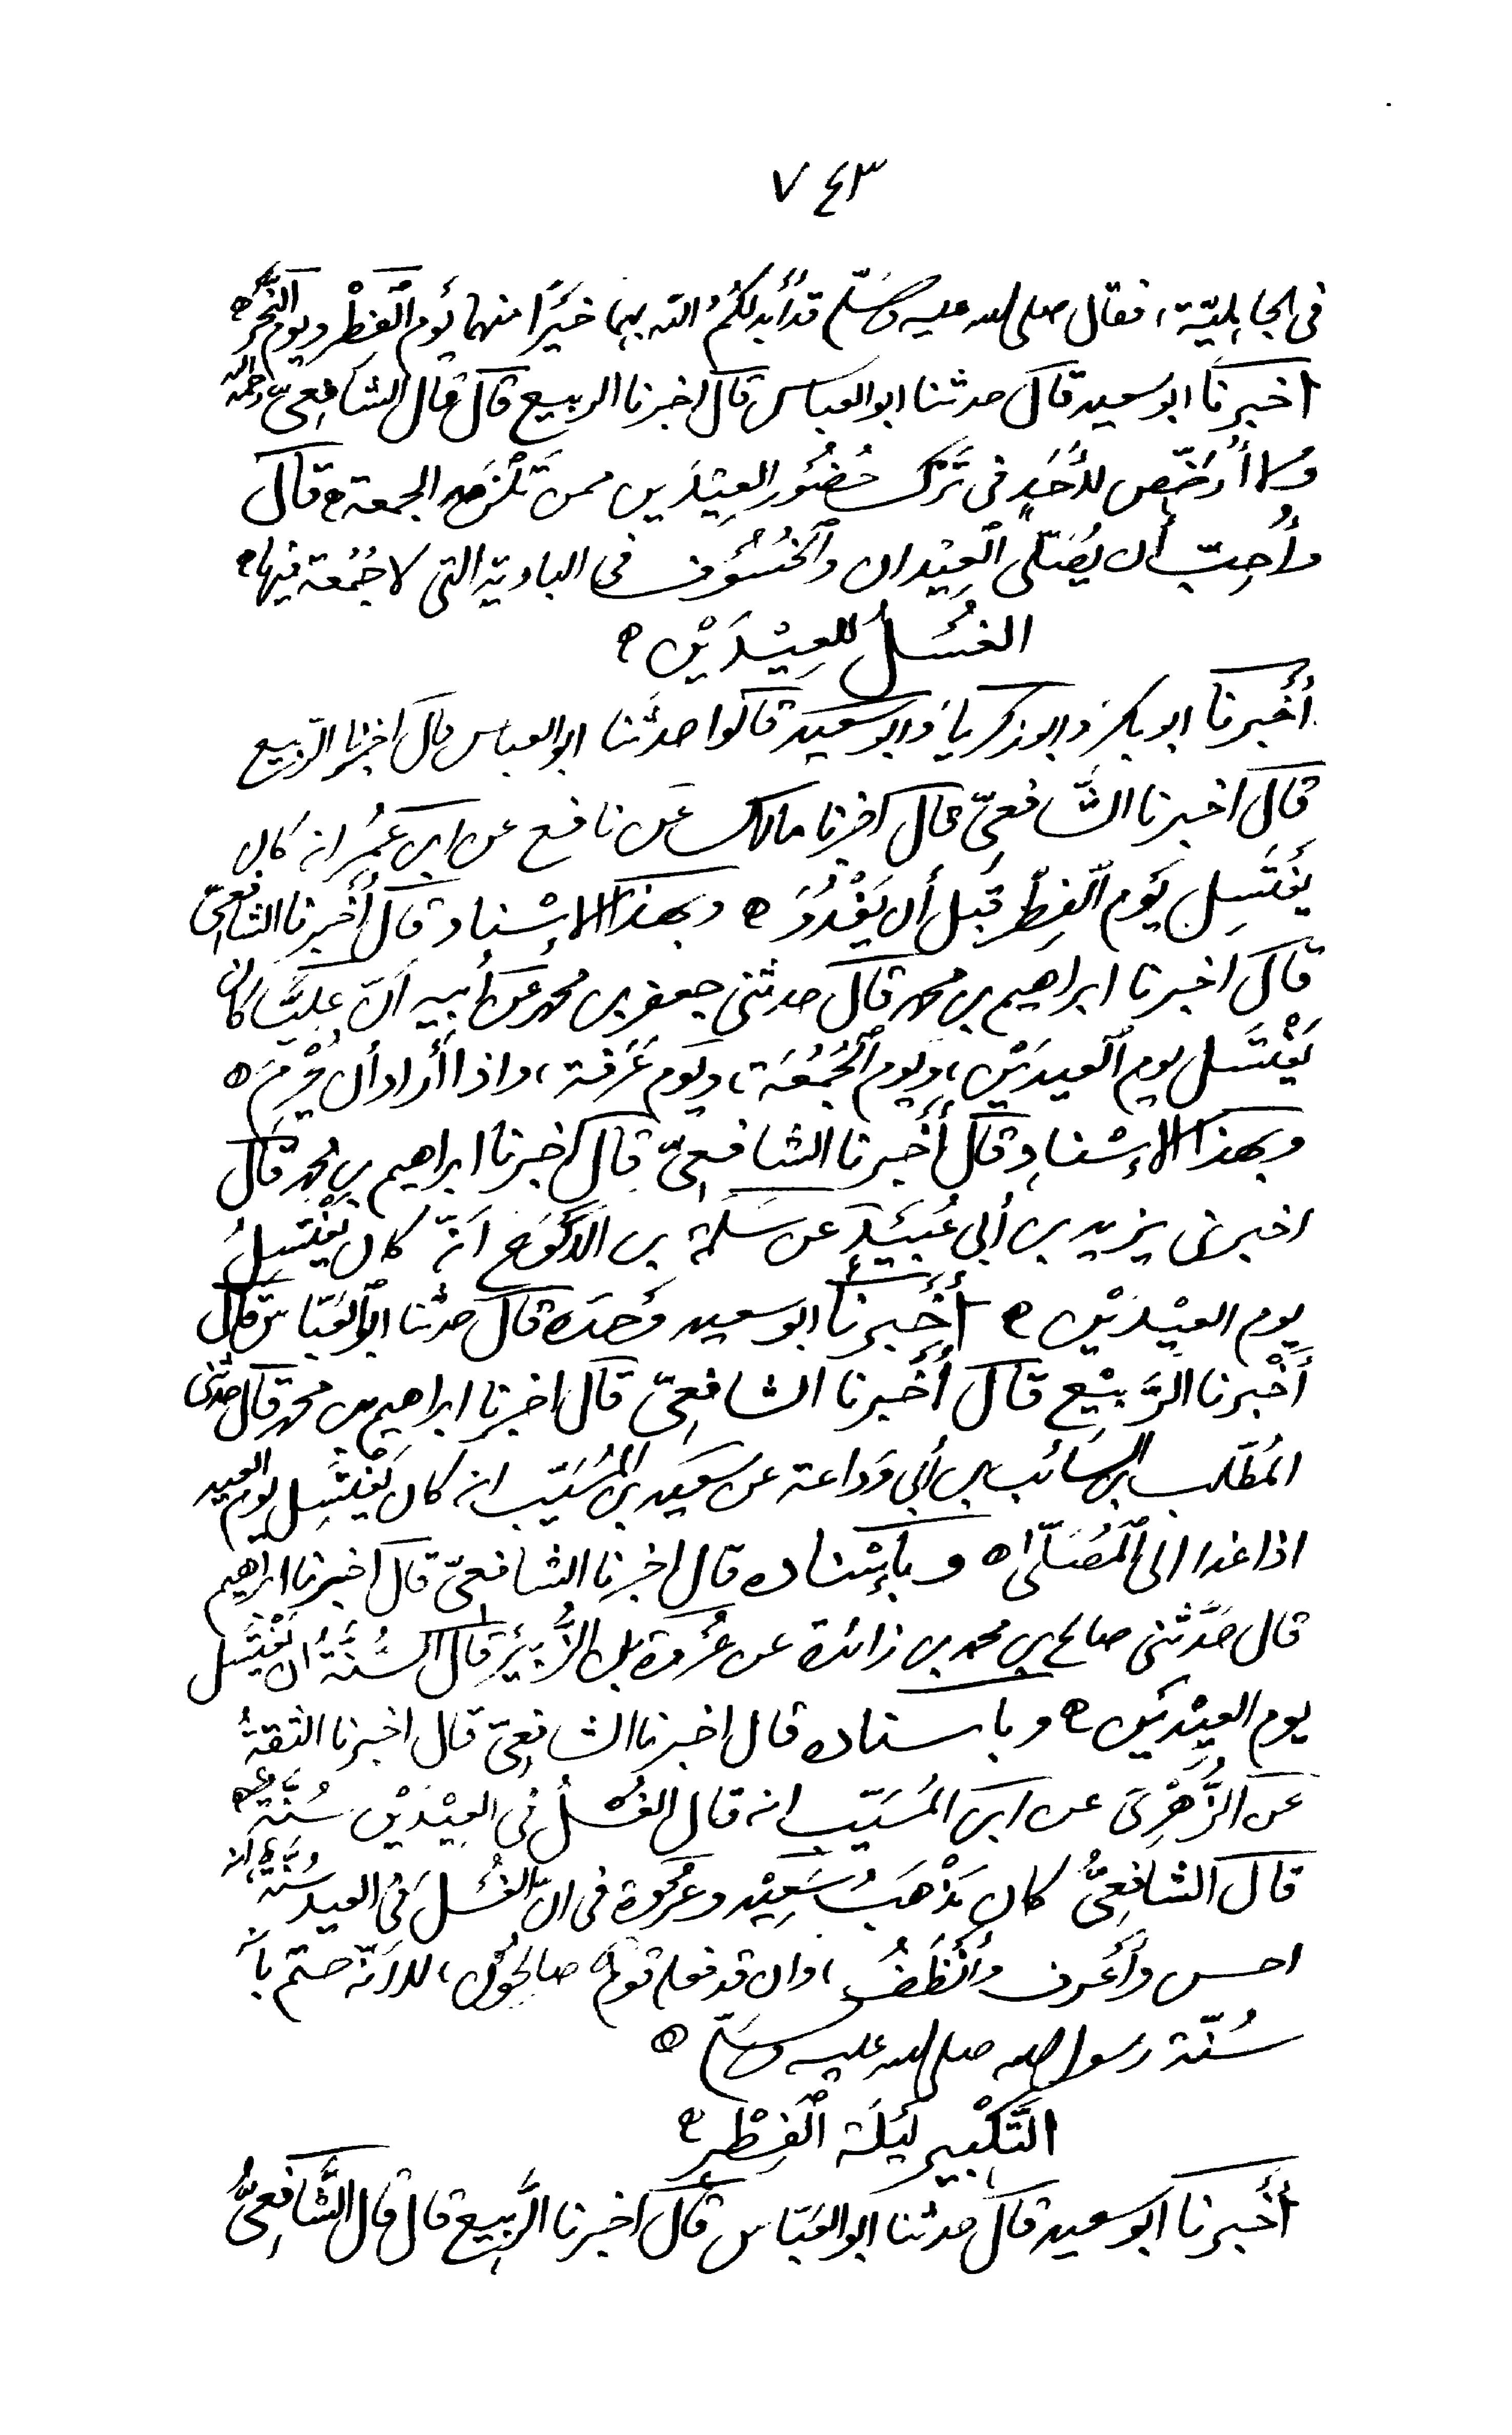 ٧٤٣
في الجاهلية، فقال صلى الله عليه وسلم قد أبدلكم الله بهما خيرًا منهما يوم الفطر ويوم النحر ه
اخبرنا ابو سعيد قال حدثنا ابو العباس قال اخبرنا الربيع قال قال الشافعي رحمه الله
ولا أرخص لأحد في ترك حضور العيدين ممن تلزمه الجمعة ه قال
وأحب أن يصلى العيدان والخسوف في البادية التي لا جمعة فيها ه
الغسل للعيدين ه
أخبرنا ابو بكر وابو زكريا وابو سعيد قالوا حدثنا ابو العباس قال اخبرنا الربيع
قال اخبرنا الشافعي قال اخبرنا مالك عن نافع عن ابن عمر انه كان
يغتسل يوم الفطر قبل أن يغدو ه وبهذا الإسناد قال أخبرنا الشافعي
قال اخبرنا ابراهيم بن محمد قال حدثني جعفر بن محمد عن أبيه أن عليًّا كان
يغتسل يوم العيدين، ويوم الجمعة، ويوم عرفة، واذا أراد أن يحرم ه
وبهذا الإسناد قال أخبرنا الشافعي قال اخبرنا ابراهيم بن محمد قال
اخبرني يزيد بن أبي عبيد عن سلمة بن الأكوع أنه كان يغتسل
يوم العيدين ه أخبرنا ابو سعيد وحده قال حدثنا ابو العباس قال
أخبرنا الربيع قال أخبرنا الشافعي قال اخبرنا ابراهيم بن محمد قال حدثني
المطلب بن السائب بن أبي وداعة عن سعيد بن المسيب انه كان يغتسل يوم العيد
اذا غدا الى المصلى ه وبإسناده قال اخبرنا الشافعي قال اخبرنا ابراهيم
قال حدثني صالح بن محمد بن زائدة عن عروة بن الزبير قال السنة أن يغتسل
يوم العيدين ه وباسناده قال اخبرنا الشافعي قال اخبرنا الثقة
عن الزهري عن ابن المسيب انه قال الغسل في العيدين سنة
قال الشافعي كان مذهب سعيد وعروة في ان الغسل في العيد سنة انه
احسن وأعرف وأنظف، وان قد فعله قوم صالحون، لا أنه حتم بأنه
سنة رسول الله صلى الله عليه وسلم ه
التكبير ليلة الفطر ه
أخبرنا ابو سعيد قال حدثنا ابو العباس قال اخبرنا الربيع قال قال الشافعي